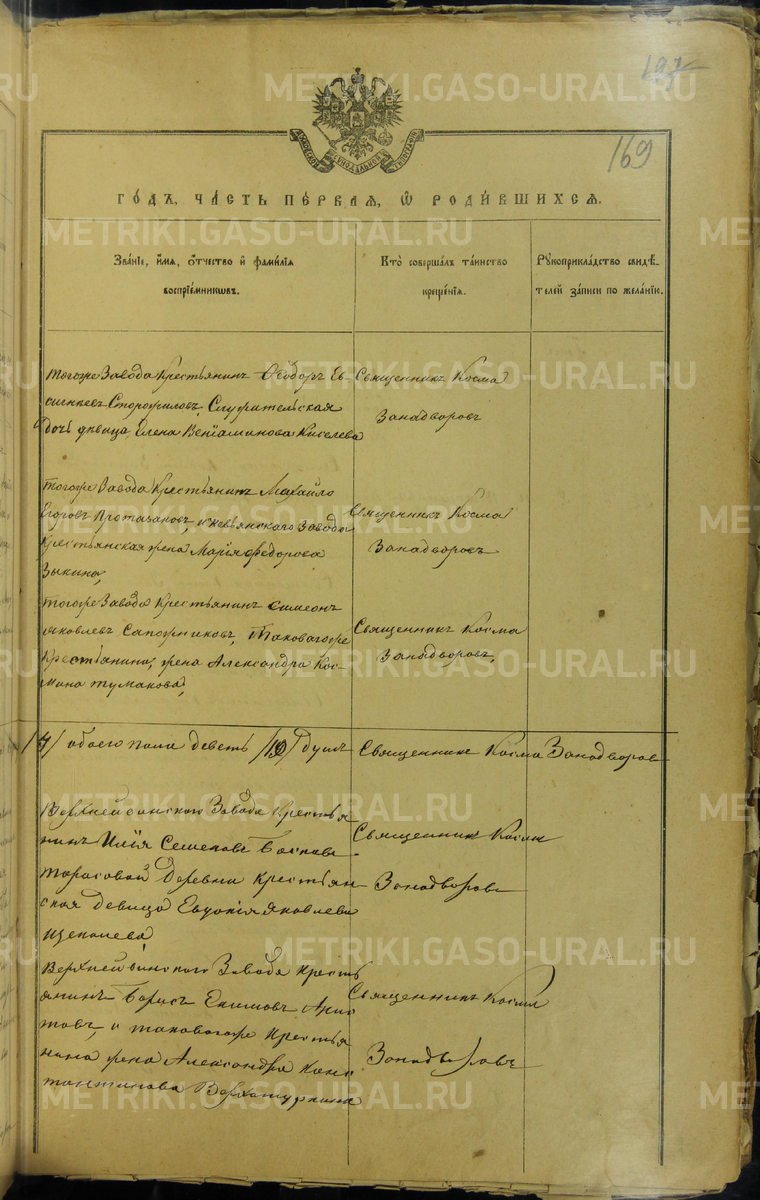 197
169
ГО́ДЪ, ЧА́СТЬ ПЕ́РВАЯ, Ѡ РОДИ́ВШИХСЯ.
Зва́ніе, и́мя, о́тчество и фами́лія
воспріе́мниковъ.
Кто̀ соверша́лъ та́инство
креще́нія.
Рукоприкла́дство свидѣ́-
телей за́писи по жела́нію.
тогоже Завода Крестьянинъ Ѳеодоръ Ев-
сигнѣевъ Сторожиловъ, Служительская
дочь дѣвица Елена Веніаминова Киселева
Священникъ Косма
Занадворовъ
тогоже Завода Крестьянинъ Михайло
Егоровъ Протазановъ, и Невьянскаго Завода
Крестьянская жена Марія Федорова
Зыкина,
Священникъ Косма
Занадворовъ
тогоже Завода Крестьянинъ Симеонъ
Яковлевъ Сапожниковъ, Таковагоже
Крестьянина, жена Александра Кос-
мина Тумакова,
Священникъ Косма
Занадворовъ,
обоего пола девять душъ
Священникъ Косма Занадворовъ
Верхнейвинского Завода Крестья
нинъ Илія Семеновъ
Тарасовой Деревни Крестьян
ская Девица Евдокія Яковлева
Щеколева
Священникъ Косма
Занадворовъ
Верхнейвинского Завода Кресть
янинъ Борисъ Екимовъ Арис
товъ, и таковогоже Крестья
нина жена Александра Конс
тантинова Верхотуркина
Священникъ Косма
Занадворовъ
METRIKI.GASO-URAL.RU